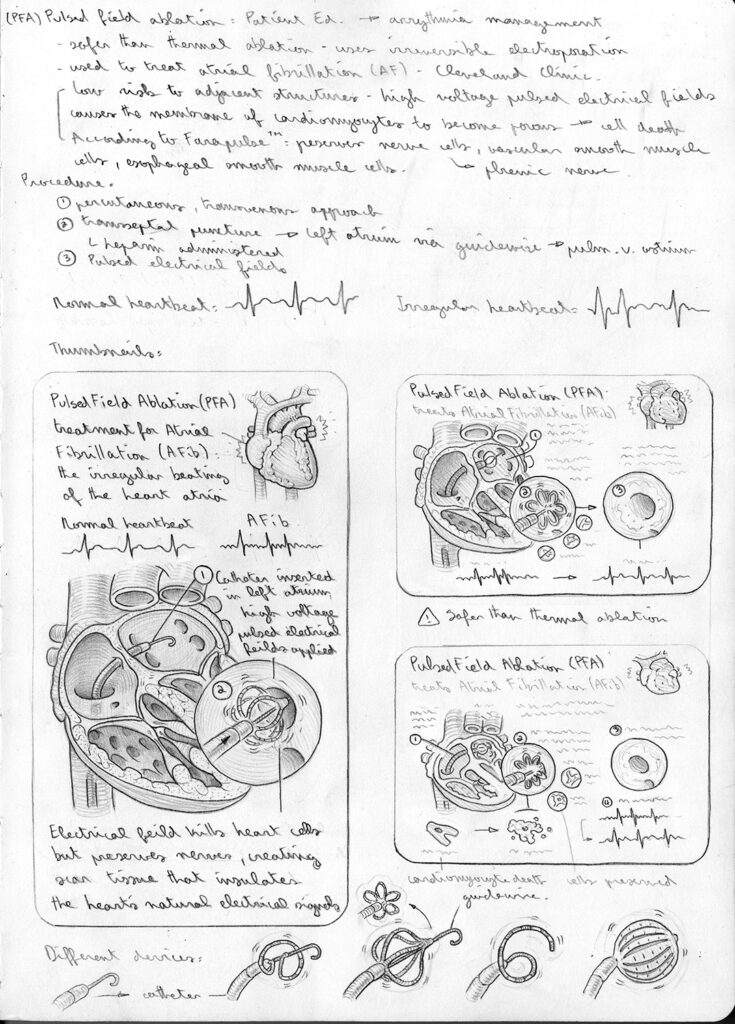 (PFA) Pulsed field ablation: Patient Ed. → arrythmia management
- safer than thermal ablation - uses irreversible electroporation
- used to treat atrial fibrillation (AF) - Cleveland Clinic.
Low risk to adjacent structures - high voltage pulsed electrical fields
causes the membrane of cardiomyocytes to become porous → cell death
According to Farapulse™: preserves nerve cells, vascular smooth muscle
cells, esophageal smooth muscle cells. ↳ phrenic nerve
Procedure.
① percutaneous, transvenous approach
② transseptal puncture → left atrium via guidewire → pulm. v. ostium
↳ heparin administered
③ Pulsed electrical fields
Normal heartbeat:
Irregular heartbeat:
Thumbnails:
Pulsed Field Ablation (PFA)
treatment for Atrial
Fibrillation (AFib):
the irregular beating
of the heart atria
Normal heartbeat
AFib
① Catheter inserted
in left atrium,
high voltage
pulsed electrical
feilds applied
②
Electrical feild kills heart cells
but preserves nerves, creating
scar tissue that insulates
the heart's natural electrical signals
Pulsed Field Ablation (PFA)
treats Atrial Fibrillation (AFib)
①
②
③
⚠ Safer than thermal ablation
Pulsed Field Ablation (PFA)
treats Atrial Fibrillation (AFib)
①
②
③
④
cardiomyocyte death
cells preserved
guidewire.
Different devices:
catheter